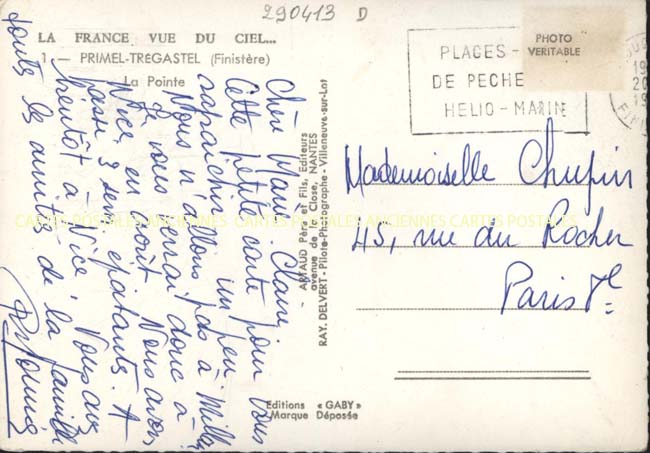 290413 D
LA FRANCE VUE DU CIEL...
1 — PRIMEL-TREGASTEL (Finistère)
La Pointe
Chère Marie Claire,
Cette petite carte pour vous
rafraîchir un peu.
Nous n'allons pas à Millau
je vous verrai donc à
Nice en août. Nous avons
passé 3 sem. épatantes. A
bientôt à Nice. Vous avez
toutes les amitiés de la famille
ARTAUD Père et Fils, Editeurs
avenue de la Close, NANTES
RAY. DELVERT - Pilote-Photographe - Villeneuve-sur-Lot
Editions « GABY »
Marque Déposée
PHOTO
VERITABLE
PLAGES -
DE PECHE
HELIO - MARIN
19
20
Mademoiselle Chupin
45, rue du Rocher
Paris 8e
CARTES POSTALES ANCIENNES CARTES POSTALES ANCIENNES CARTES POSTALES